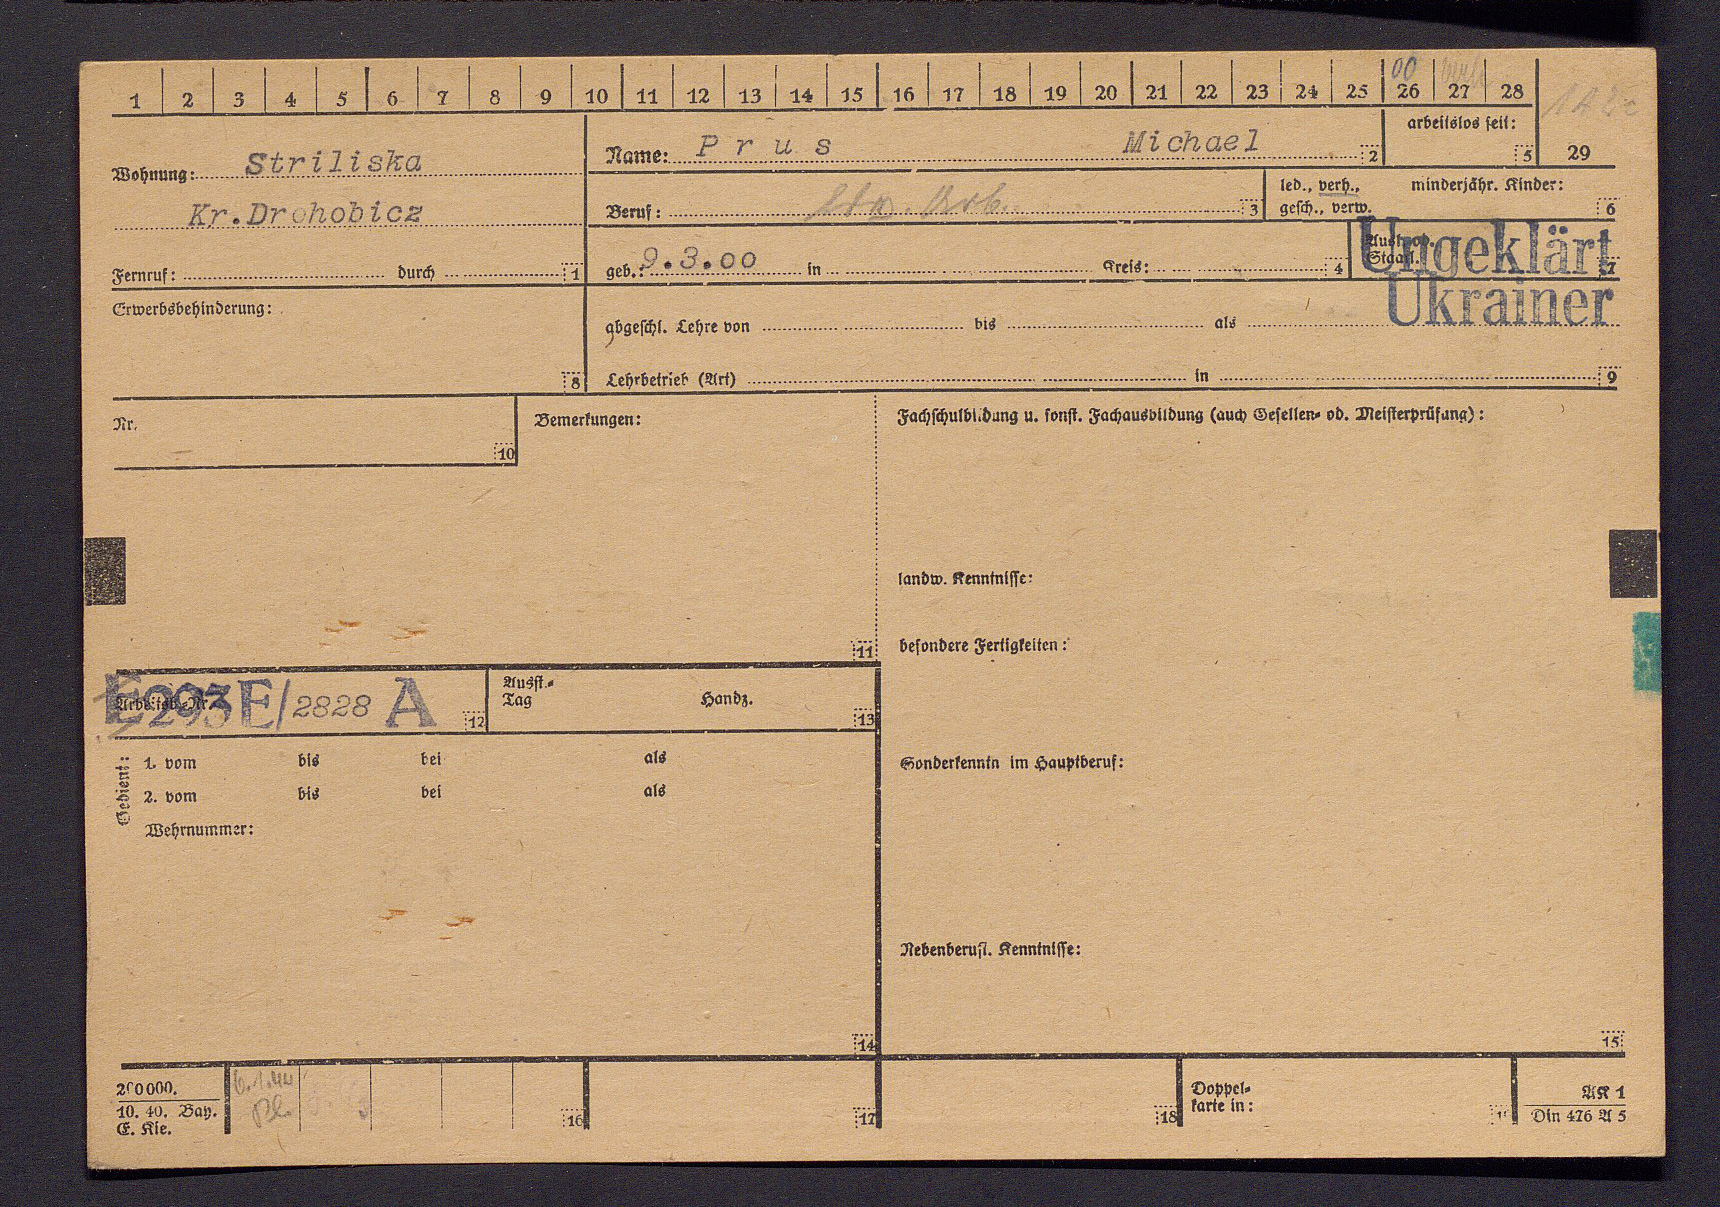 1 2 3 4 5 6 7 8 9 10 11 12 13 14 15 16 17 18 19 20 21 22 23 24 25 26 27 28
00
Wohnung: Striliska
Kr.Drohobicz
Fernruf: durch 1
Name: Prus Michael 2
arbeitslos seit:
5 29
Beruf: 3
led., verh., minderjähr. Kinder:
gesch., verw. 6
geb.: 9.3.00 in Kreis: 4
Staatl. 7
Ungeklärt
Ukrainer
Erwerbsbehinderung:
8
abgeschl. Lehre von bis als
Lehrbetrieb (Art) in 9
Nr.
10
Bemerkungen:
11
Fachschulbildung u. sonst. Fachausbildung (auch Gesellen- od. Meisterprüfung):
landw. Kenntnisse:
besondere Fertigkeiten:
Sonderkenntn im Hauptberuf:
Nebenberufl. Kenntnisse:
15
Arbeitsb.-Nr.
293 E/2828 A 12
Ausst.-
Tag Handz. 13
Gedient:
1. vom bis bei als
2. vom bis bei als
Wehrnummer:
14
200000.
10. 40. Bay.
E. Kie.
6.1.44
16 17 18
Doppel-
karte in:
AK 1
Din 476 A 5